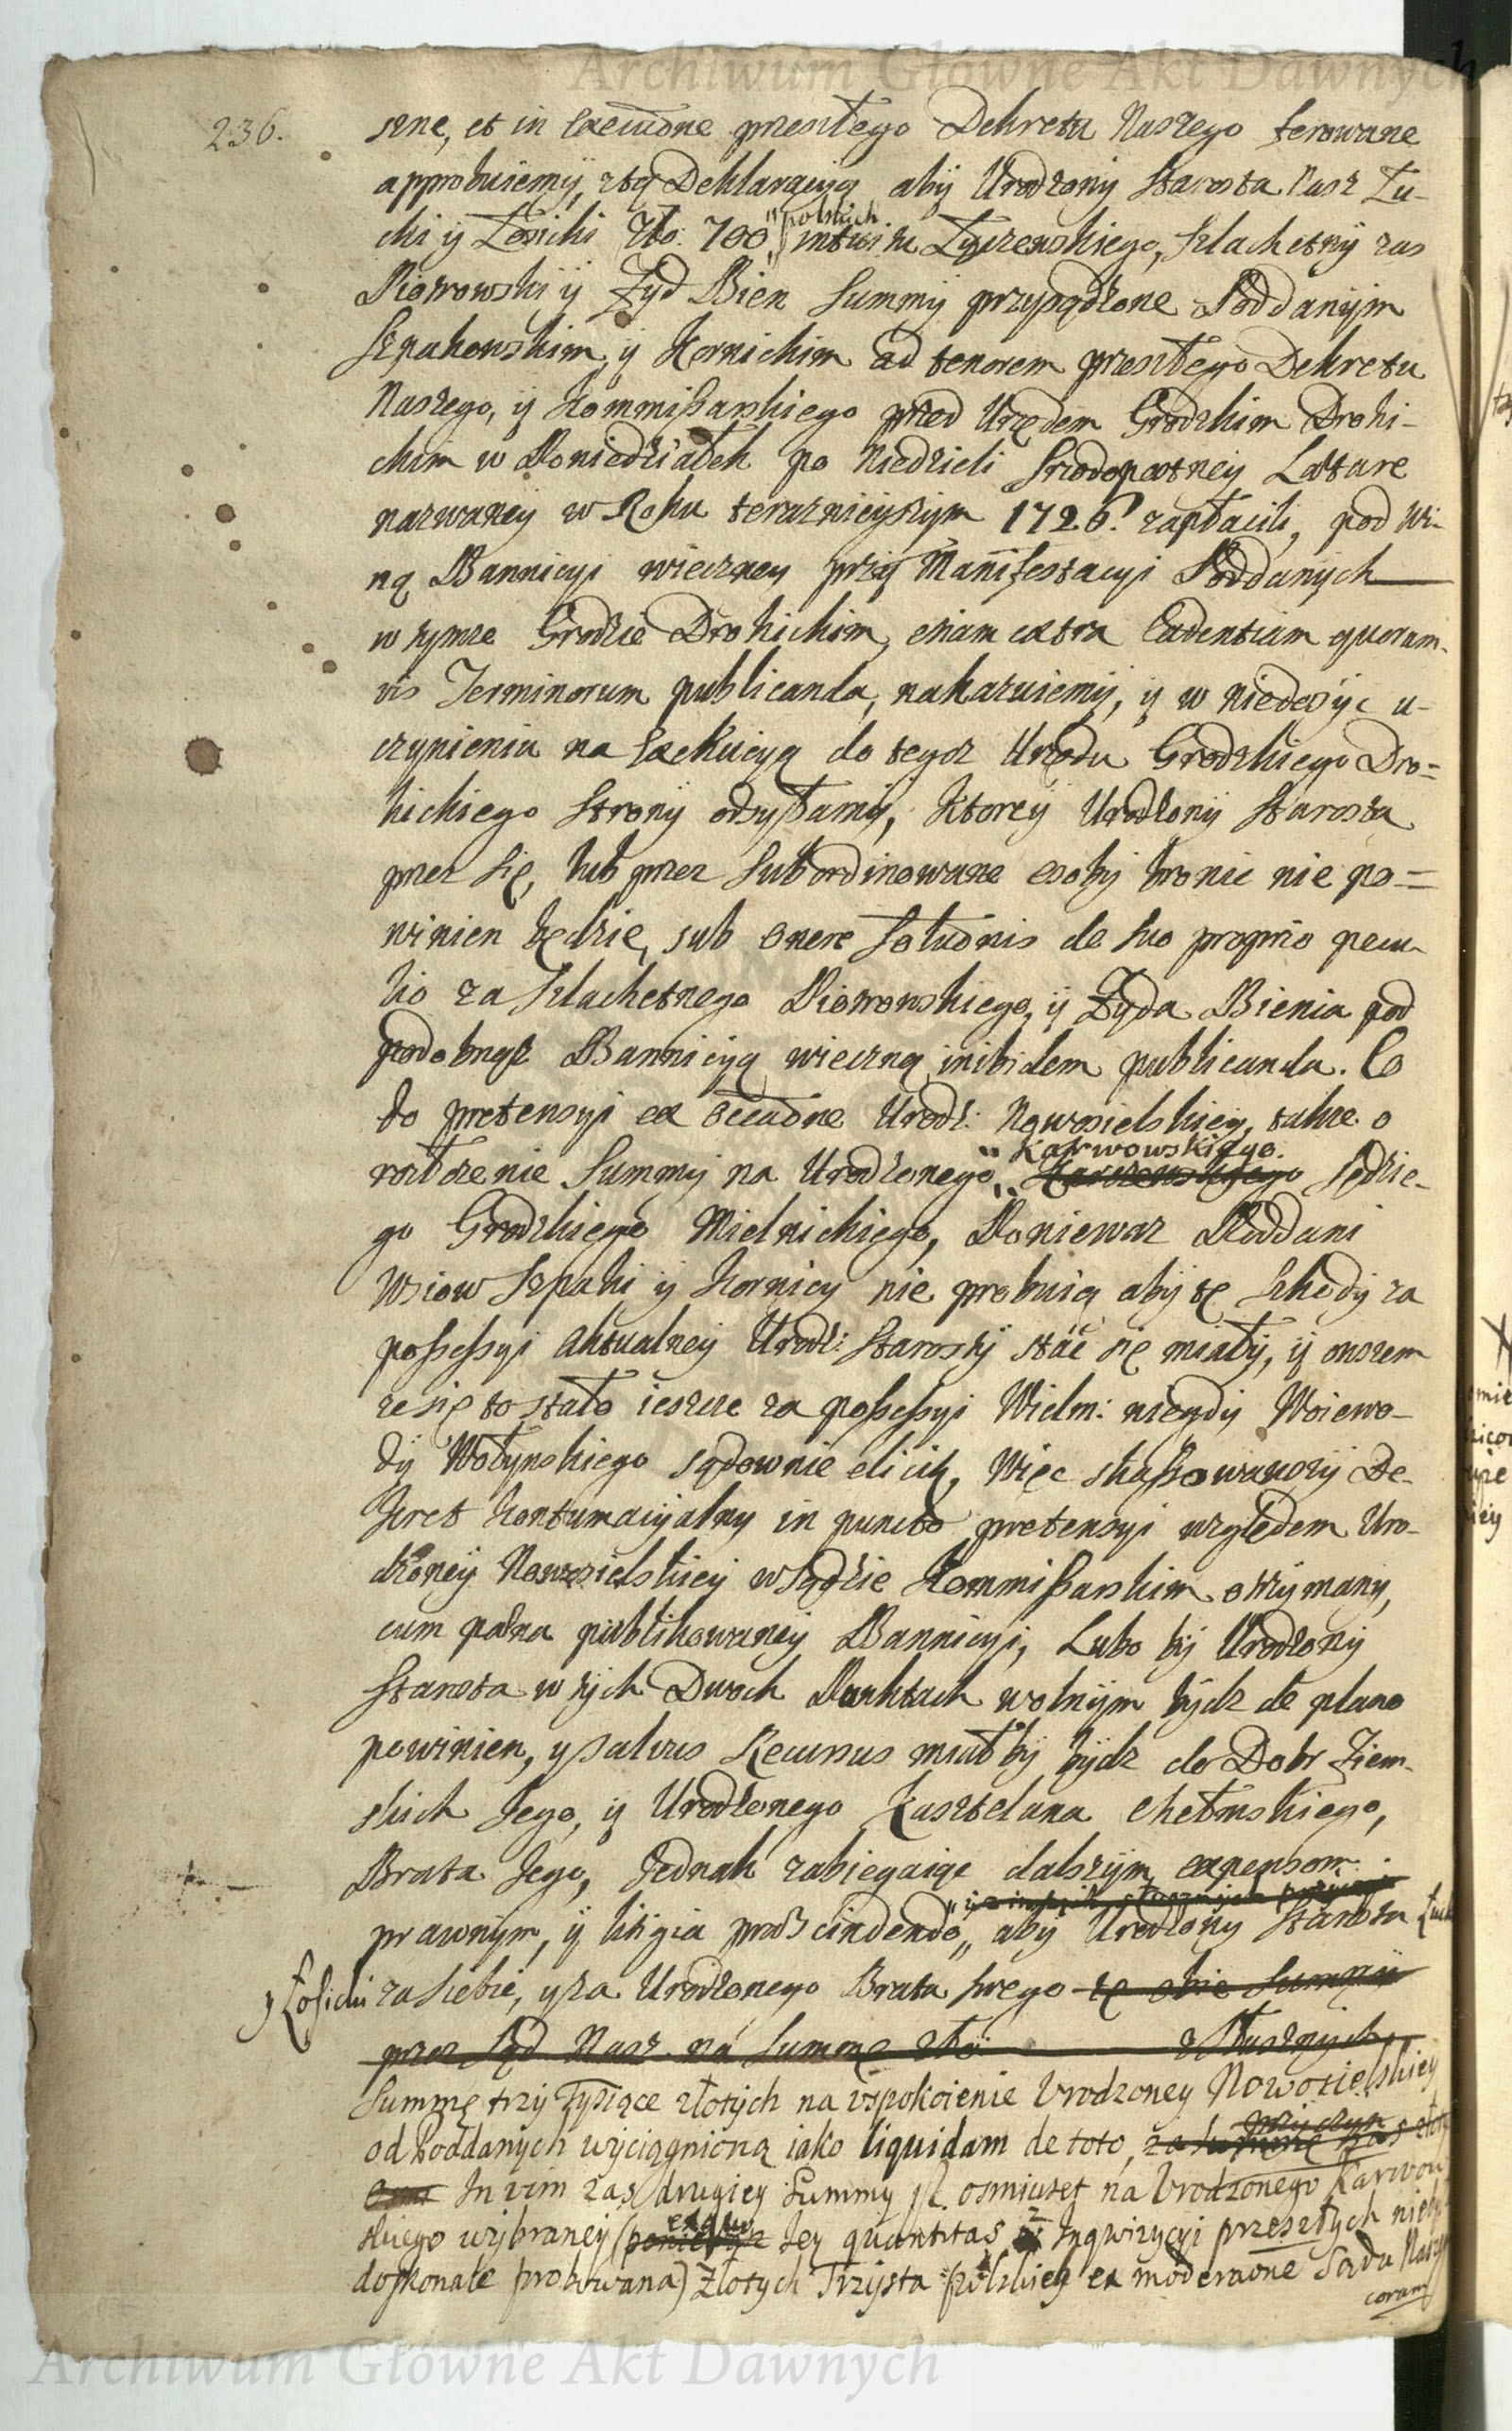 Archiwum Główne Akt Dawnych
236.
szne, et in Executione przeszłego Dekretu Naszego ferowane
approbuiemy, z tą Deklaracyią aby Urodzony Starosta Nasz Łu-
cki y Łosicki Zło: 700 „polskich intuitu Łyczewskiego, Szlachetny zas
Piotrowski y Żyd Bien Summy przysądzone Poddanym
Szpakowskim, y Kornickim ad tenorem przeszłego Dekretu
Naszego, y Kommissarskiego przed Urzędem Grodzkim Drohi-
ckim w Poniedziałek po Niedzieli Srodopostney Lætare
nazwaney w Roku teraznieyszym 1726. zapłacili, pod wi-
ną Bannicyi wieczney przy Manifestacyi Poddanych
w tymze Grodzie Drohickim, etiam extra Cadentiam quorum-
vis Terminorum publicanda, nakazuiemy, y w niedosyc u-
czynieniu na Exekucyą do tegoz Urzędu Grodzkiego Dro=
hickiego Strony odsyłamy, Ktorey Urodzony Starosta
przez się, lub przez Subordinowane osoby bronic nie po=
winien będzie, sub onere Solutionis de suo proprio pecu-
lio za Szlachetnego Piotrowskiego, y Żyda Bienia pod
podobnąz Bannicyą wieczną inibidem publicanda. Co
do pretensyi ex occasione Urodz: Nowosielskiey, takze o
„Karwowskiego.
rozłozenie Summy na Urodzonego „ Sędzie-
go Grodzkiego Mielnickiego, Poniewaz Poddani
Wsiow Szpaki y Kornicy nie probuią aby te Szkody za
possessyi aktualney Urodz: Starosty stać się miały, y owszem
ze się to stało ieszcze za possessyi Wielm: niegdy Woiewo-
dy Wołynskiego sądownie elicit, Więc skassowawszy De-
kret kontumacyialny in puncto pretensyi względem Uro-
dzoney Nowosielskiey w Sądzie Kommissarskim otrzymany,
cum pæna publikowaney Bannicyi, Lubo by Urodzony
Starosta w tych Dwoch Punktach wolnym bydz de plano
powinien, y salvus Recursus miałby bydz do Dobr Ziem-
skich Jego, y Urodzonego Kasztelana Chełmskiego,
Brata Jego, Jednak zabiegaiąc dalszym expensom
prawnym, y litigia præscindendo, aby Urodzony Starosta
y Łosicki za siebie, y za Urodzonego Brata swego te obie Summy
przez Sąd Nasz na Summę zło: z Słusznych
Summę trzy Tysiące złotych na uspokoienie Urodzoney Nowosielskiey
od Poddanych wyciągnioną iako liquidam de toto,
In vim zas drugiey Summy zł. osmiuset na Urodzonego Karwow
skiego wybraney ( Jey quantitas z Inqwizycyi przeszłych nie
doskonale probowana) złotych Trzysta polskich ex moderatione Sądu
coram
Archiwum Główne Akt Dawnych